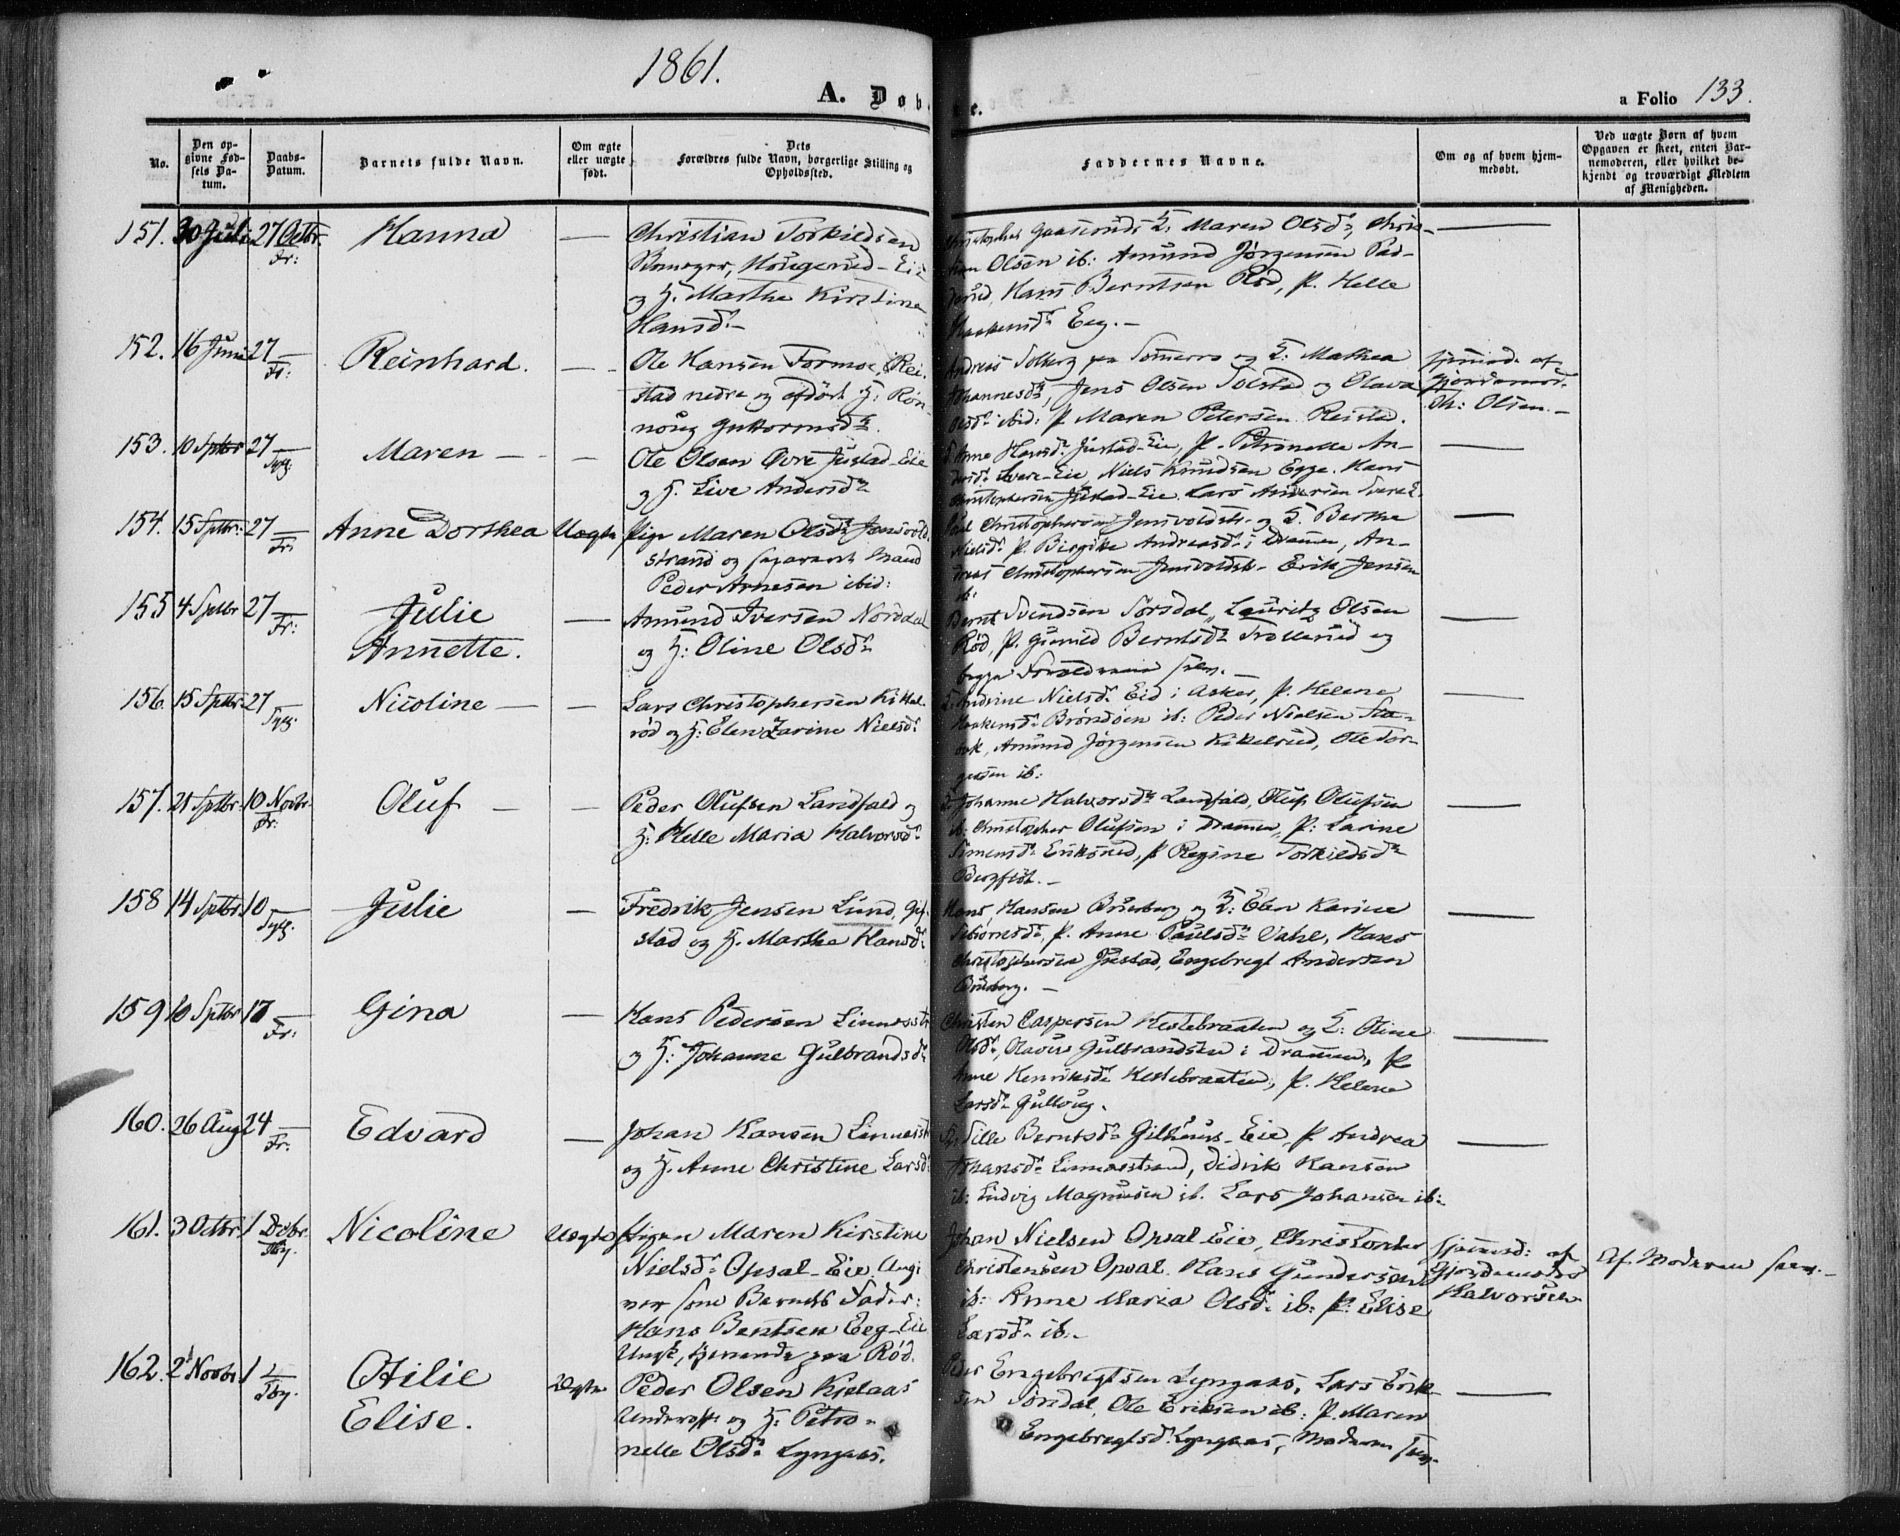 1861.
A. Døb
e.
a Folio 133.
No.
Den op-
givne Fød-
sels Da-
tum.
Daabs-
Datum.
Barnets fulde Navn.
Om ægte
eller uægte
født.
Dets
Forældres fulde Navn, borgerlige Stilling og
Opholdssted.
Faddernes Navne.
Om og af hvem hjem-
medøbt.
Ved uægte Børn af hvem
Opgaven er skeet, enten Bar-
nemoderen, eller hvilket be-
kjendt og troværdigt Medlem
af Menigheden.
151. 30 Juli 27 Octbr. Fr: Hanna —
Christian Torkildsen
Hougerud-Ei
og H. Marthe Kirstine
Hansd. —
Gaaserud, Maren Olsd., Chris-
tian Olsen ib: Amund Jørgensen Pad-
derud, Hans Berntsen Rød, P. Helle
Haakensd. Eeg. —
152. 16 Juni 27 — Fr: Reinhard. —
Ole Hansen Formoe, Rei-
stad nedre og afdöde H: Røn-
noug Guttormsd.
Andreas Solberg paa Sommerro og Mathea
Johannesd., Jens Olsen Tolstad og Olava
Olsd. ibid: P. Maren Petersen Reistad.
hjemmed. af
Gjordemod.
Olsen. —
153. 10 Sptbr 27 — Sylg. Maren — —
Ole Olsen Övre Justad-Eie
og H. Live Andersd.
Anne Hansd. Justad-Eie, P. Petronelle An-
dersd. Svere-Eie, Niels Knudsen Egge. Hans
Christophersen Justad-Eie, Lars Andersen Svere E.
154. 15 Sptbr: 27 — Fr: Anne Dorthea Uægte
Pige Maren Olsd. Jensvold-
strand og separeret Mand
Peder Arnesen ibid:
Christophersen Jensvoldstr. og Berthe
Nielsd. P. Birgitte Andreasd. i Drammen, An-
dreas Christophersen Jensvoldstr. Erik Jensen
ib:
155 4 Sptbr 27 — Fr: Julie
Annette. —
Amund Iversen Norddal
og H: Oline Olsd.
Bernt Svendsen Sørsdal, Lauritz Olsen
Rød, P. Gunild Berntsd. Trollerud og
begge Forældrene selv. —
156. 15 Sptbr: 27 — Sylg. Nicoline — —
Lars Christophersen Kikkel-
rød og H: Elen Zarine Nielsd.
Andrine Nielsd. Eid i Asker, P. Helene
Haakensd. Brøndøen ib: Peder Nielsen Sta-
bæk, Amund Jørgensen Kikkelrud, Ole Tor-
gersen ib:
157. 21 Sptbr. 10 Novbr. Fr: Oluf — —
Peder Olufsen Landfald og
H: Helle Maria Halvorsd.
Johanne Halvorsd. Landfald, Oluf Olufsen
ib. Christopher Olufsen i Drammen, P: Larine
Simensd. Eriksrud, P. Regine Torkildsd.
Bergfløt. —
158 14 Sptbr 10 — Sylg. Julie —
Fredrik Jensen Lund, Gji-
stad og H. Marthe Hansd.
Hans Hansen Brusberg og Elen Karine
Tubiørnsd., P. Anne Paulsd. Vahl, Hans
Christophersen Justad, Engebregt Andersen
Brusberg. —
159 10 Sptbr 17 — Fr: Gina —
Hans Pedersen Linnesstr
og H: Johanne Gulbrandsd.
Christen Caspersen Hestebraaten og Oline
Olsd., Olavus Gulbrandsen i Drammen, P.
Anne Henriksd. Hestebraaten, P. Helene
Larsd. Gulloug.
160. 26 Aug 24 — Fr: Edvard —
Johan Hansen Linnesstr
og H. Anne Christine Larsd.
Sille Berntsd. Gilhuus-Eie, P. Andrea
Johansd. Linnesstrand, Didrik Hansen
ib: Ludvig Magnusen ib. Lars Johansen ib:
161. 3 Octbr. 1 Dcbr. Tby. Nicoline Uægte
Pigen Maren Kirstine
Nielsd. Opsal-Eie, Angi-
ver som Barnets Fader:
Hans Bentsen Eeg-Eie
Ungk, tjenende paa Rød.
Johan Nielsen Opsal Eie, Christopher
Christensen Opsal. Hans Gundersen
ib: Anne Maria Olsd. ib: P: Elise
Larsd. ib.
hjemmed: af
Gjordemoder
Halvorsen
Af Moderen selv. —
162. 2 Novbr. 1 — Tby. Otilie
Elise. Uægte
Peder Olsen Kjelaas
og H: Petro-
nelle Olsd. Lyngaas.
Peder Engebregtsen Lyngaas, Lars Erik-
sen Sørsdal, Ole Eriksen ib: P. Maren
Engebregtsd. Lyngaas, Moderen selv.